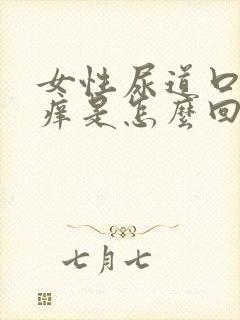 女性尿道口
痒是怎麼回
七月七